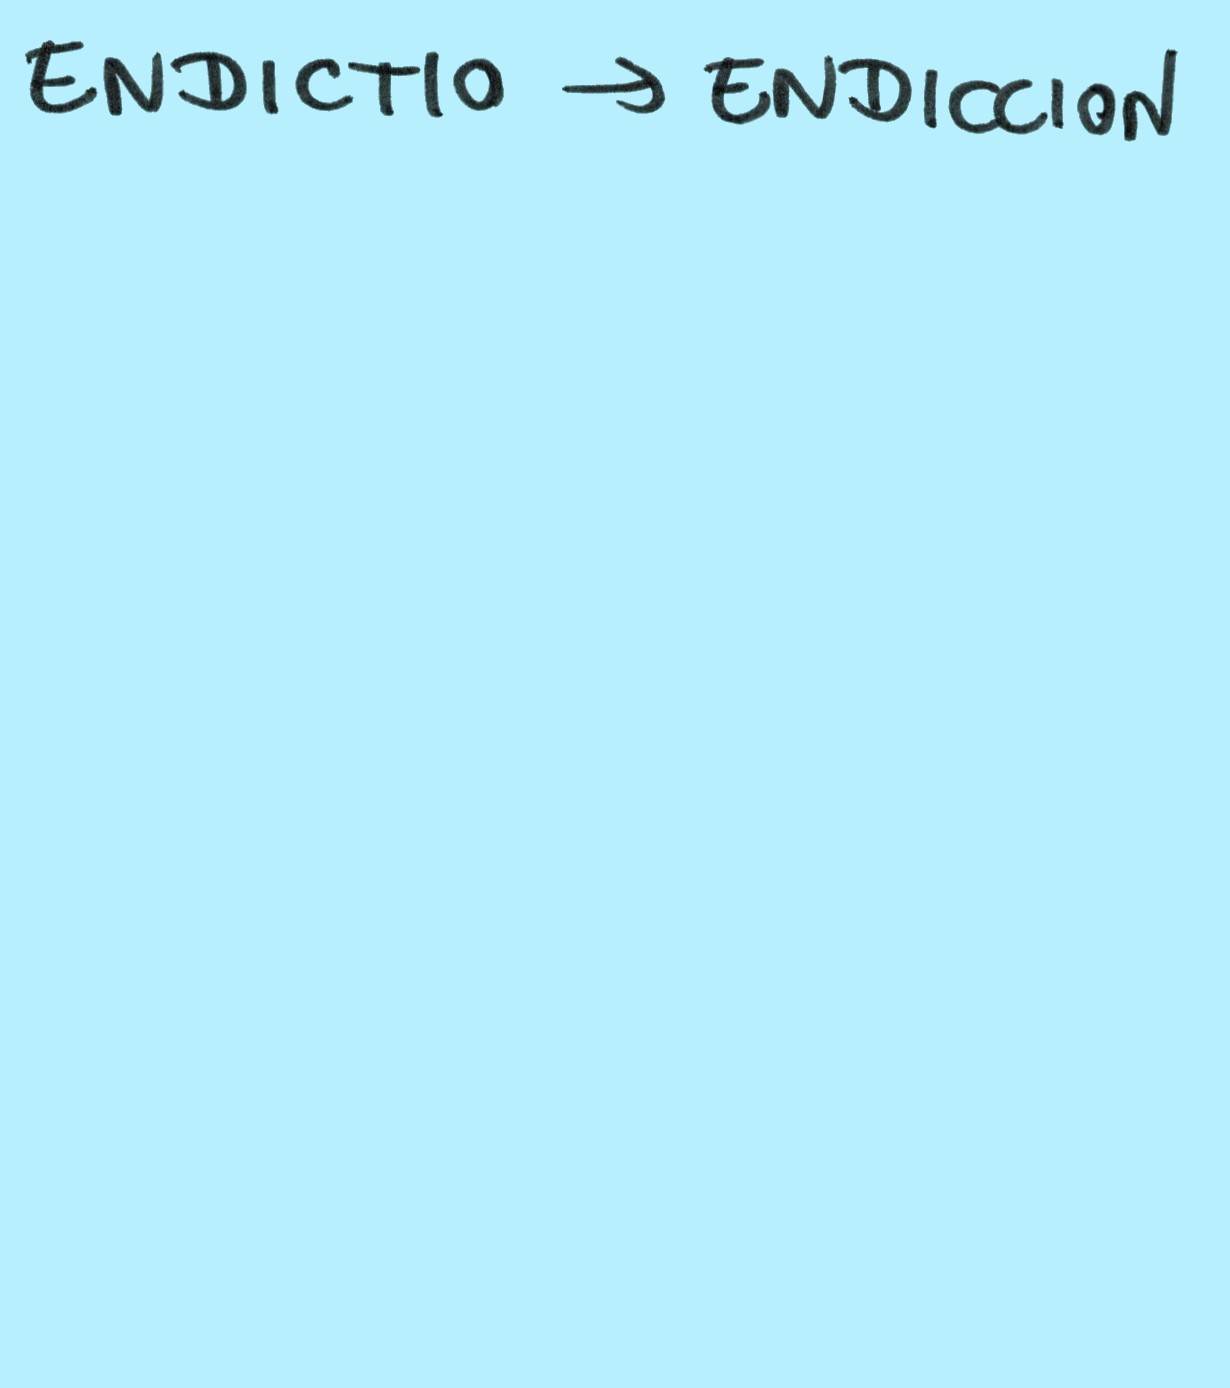 ENDICTIO → ENDICCION